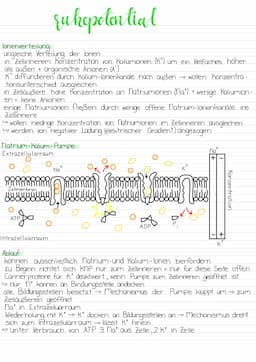 ruhepotential
Ionenverteilung:
ungleiche Verteilung der Ionen
in Zellinnerem Konzentration von Kaliumionen (K⁺) um ein Vielfaches höher
als außen + organische Anionen (A⁻)
K⁺ diffundieren durch Kalium-Ionenkanäle nach außen → wollen Konzentra-
tionsunterschied ausgleichen
in Zelläußere hohe Konzentration an Natriumionen (Na⁺) + wenige Kaliumion-
en + keine Anionen
einige Natriumionen fließen durch wenige offene Natrium-Ionenkanäle ins
Zellinnere
↳ wollen niedrige Konzentration von Natriumionen im Zellinneren ausgleichen
↳ werden von negativer Ladung (elektrischer Gradient) angezogen
Natrium-Kalium-Pumpe:
Extrazellulärraum
Na⁺
K⁺
Na⁺
Zellmembran
Konzentration
ATP
ADP
P
K⁺
Intrazellulärraum
Ablauf:
können ausschließlich Natrium- und Kalium-Ionen befördern
zu Beginn richtet sich KNP nur zum Zellinneren + nur für diese Seite offen
Carrierproteine für K⁺ deaktiviert, wenn Pumpe zum Zellinneren geöffnet ist
→ nur Na⁺ können an Bindungsstelle andocken
alle Bindungsstellen besetzt → Mechanismus der Pumpe klappt um → zum
Zelläußeren geöffnet
Na⁺ in Extrazellulärraum
Wiederholung mit K⁺ → K⁺ docken an Bindungsstellen an → Mechanismus dreht
sich zum Intrazellulärraum → lässt K⁺ hinein
⇒ unter Verbrauch von ATP 3 Na⁺ aus Zelle, 2 K⁺ in Zelle